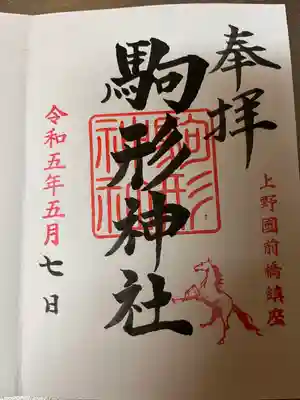 奉拝
上野國前橋鎮座
駒形神社
駒形
神社
令和五年五月七日